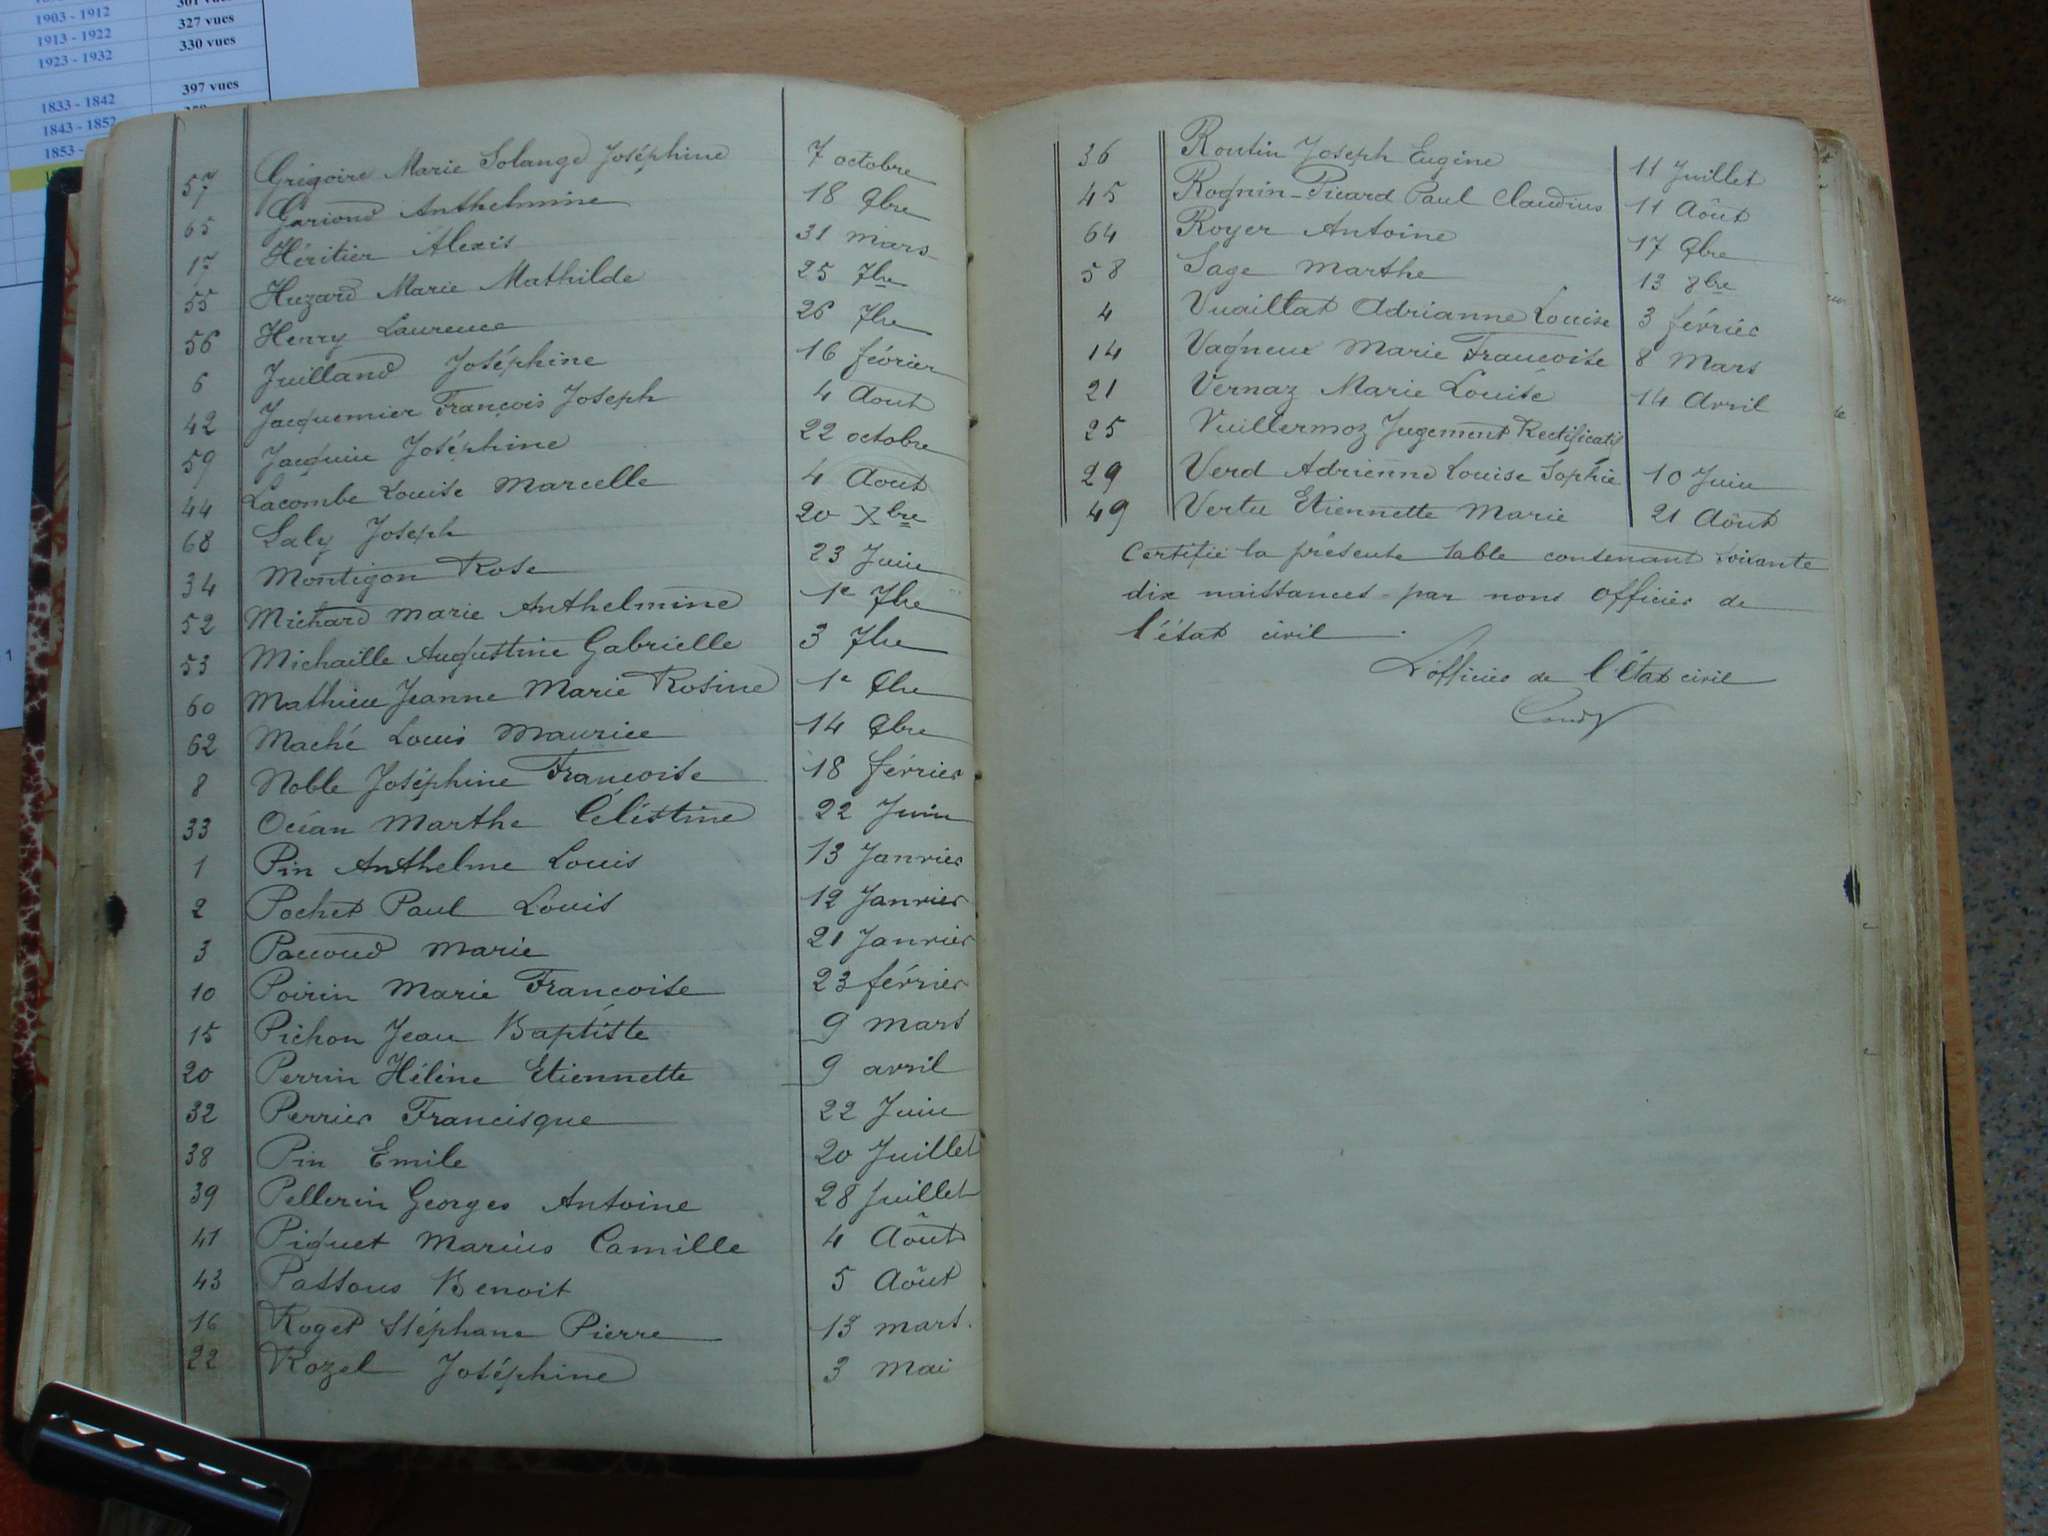 1903 - 1912 301 vues
1913 - 1922 327 vues
1923 - 1932 330 vues
397 vues
1833 - 1842
1843 - 1852
1853 -
1
57 Grégoire Marie Solange Joséphine 7 octobre
65 Gariond Anthelmine 18 9bre
17 Héritier Alexis 31 mars
55 Huzard Marie Mathilde 25 7bre
56 Henry Laurence 26 7bre
6 Juilland Joséphine 16 février
42 Jacquemier François Joseph 4 Aout
59 Jacquin Joséphine 22 octobre
44 Lacombe Louise Marcelle 4 Aout
68 Laly Joseph 20 Xbre
34 Montigon Rose 23 Juin
52 Michard Marie Anthelmine 1e 7bre
53 Michaille Augustine Gabrielle 3 7bre
60 Mathieu Jeanne Marie Rosine 1e 9bre
62 Maché Louis Maurice 14 9bre
8 Noble Joséphine Françoise 18 février
33 Océan Marthe Céléstine 22 Juin
1 Pin Anthelme Louis 13 Janvier
2 Pochet Paul Louis 12 Janvier
3 Marie 21 Janvier
10 Poirin Marie Françoise 23 février
15 Pichon Jean Baptiste 9 mars
20 Perrin Hélène Etiennette 9 avril
32 Perrier Francisque 22 Juin
38 Pin Emile 20 Juillet
39 Pellerin Georges Antoine 28 Juillet
41 Piquet Marius Camille 4 Août
43 Passous Benoit 5 Août
16 Roget Stéphane Pierre 13 mars.
22 Rozel Joséphine 3 Mai
36 Routin Joseph Eugène 11 Juillet
45 Rognin-Picard Paul Claudius 11 Août
64 Royer Antoine 17 9bre
58 Sage Marthe 13 8bre
4 Vuaillat Adrianne Louise 3 février
14 Vagneux Marie Françoise 8 Mars
21 Vernaz Marie Louise 14 Avril
25 Vuillermoz Jugement Rectificatif
29 Verd Adrienne Louise Sophie 10 Juin
49 Vertu Etiennette Marie 21 Août
Certifié la présente table contenant soixante
dix naissances par nous officier de
l'état civil.
L'officier de l'état civil